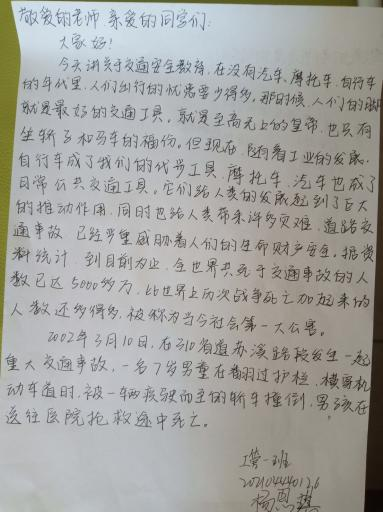 敬爱的老师 亲爱的同学们:
大家好!
今天讲关于交通安全教育,在没有汽车、摩托车、自行车
的年代里,人们出行的忧患要少得多。那时候,人们的脚
就是最好的交通工具。就是至高无上的皇帝,也只有
坐轿子和马车的福份。但现在,随着工业的发展,
自行车成了我们的代步工具、摩托车、汽车也成了
日常公共交通工具。它们给人类的发展起到了巨大
的推动作用,同时也给人类带来许多灾难、道路交
通事故 已经严重威胁着人们的生命财产安全。据资
料统计,到目前为止,全世界共死于交通事故的人
数已达5000多万,比世界上历次战争死亡加起来的
人数还多得多,被称为当今社会第一大公害。
2002年3月10日,在310省道苏溪路段发生一起
重大交通事故,一名7岁男童在翻过护栏,横穿机
动车道时,被一辆疾驶而至的轿车撞倒,男孩在
送往医院抢救途中死亡。
工管一班
杨恩